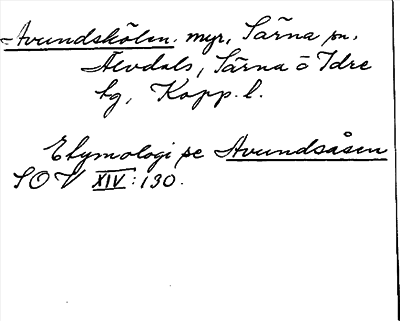 Avundskölen. myr, Särna sn,
Älvdals, Särna o Idre
tg, Kopp. l.
Etymologi se Avundsåsen
SOV XIV: 130.